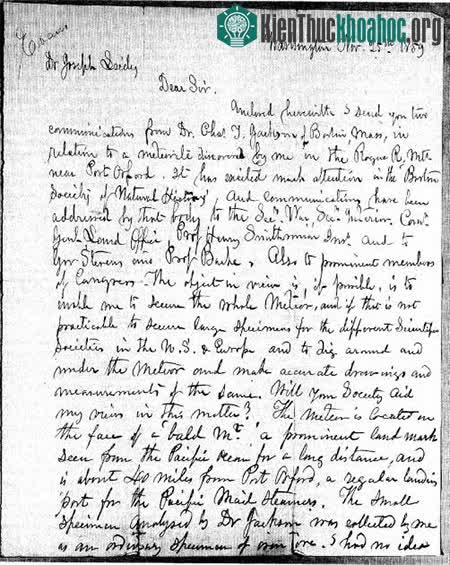 KienThucKhoahoc.org
Evans
Washington Nov. 25th 1859
Dr Joseph Leidy
Dear Sir.
Enclosed herewith I send you two
communications from Dr. Chas T. Jackson of Boston Mass, in
relation to a meteorite discovered by me in the Rogue R. Mts
near Port Orford. It has excited much attention in the Boston
Society of Natural History And communications have been
addressed by that body to the Sec. War, Sec. Interior, Com.
Genl. Land Office, Prof Henry Smithsonian Ins. and to
Gov Stevens and Prof Bache, Also to prominent members
of Congress. The object in view is, if possible, is to
enable me to secure the whole Meteor, and if this is not
practicable to secure large specimens for the different Scientific
Societies in the U.S. & Europe and to dig around and
under the Meteor and make accurate drawings and
measurements of the same. Will your Society Aid
my views in this matter? The Meteor is located on
the face of a "bald Mt" a prominent land mark
seen from the Pacific Ocean for a long distance, and
is about 40 miles from Port Orford, a regular landing
port for the Pacific Mail Steamers. The small
specimen analysed by Dr Jackson was collected by me
as an ordinary specimen of iron ore. I had no idea